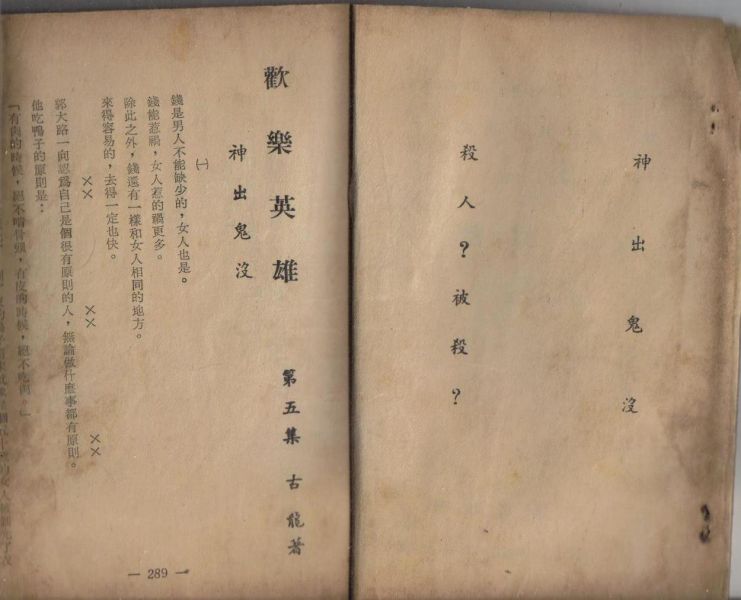 神出鬼沒
殺人？被殺？
歡樂英雄
第五集 古龍著
神出鬼沒
㈠
錢是男人不能缺少的，女人也是。
錢能惹禍，女人惹的禍更多。
除此之外，錢還有一樣和女人相同的地方。
來得容易的，去得一定也快。
×× ×× ××
郭大路一向認為自己是個很有原則的人，無論做什麼事都有原則。
他吃鴨子的原則是：
「有肉的時候，絕不啃骨頭，有皮的時候，絕不吃肉。」
— 289 —